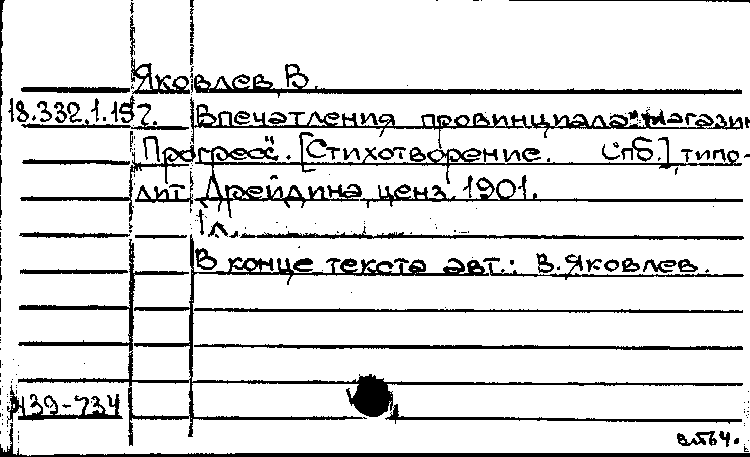 Яковлев, В.
18.332.1.157. Впечатления провинциала. Магазин
"Прогресс". [Стихотворение. Спб.], типо-
лит. Дрейдина, ценз. 1901.
1 л.
В конце текста авт.: В. Яковлев.
439-734